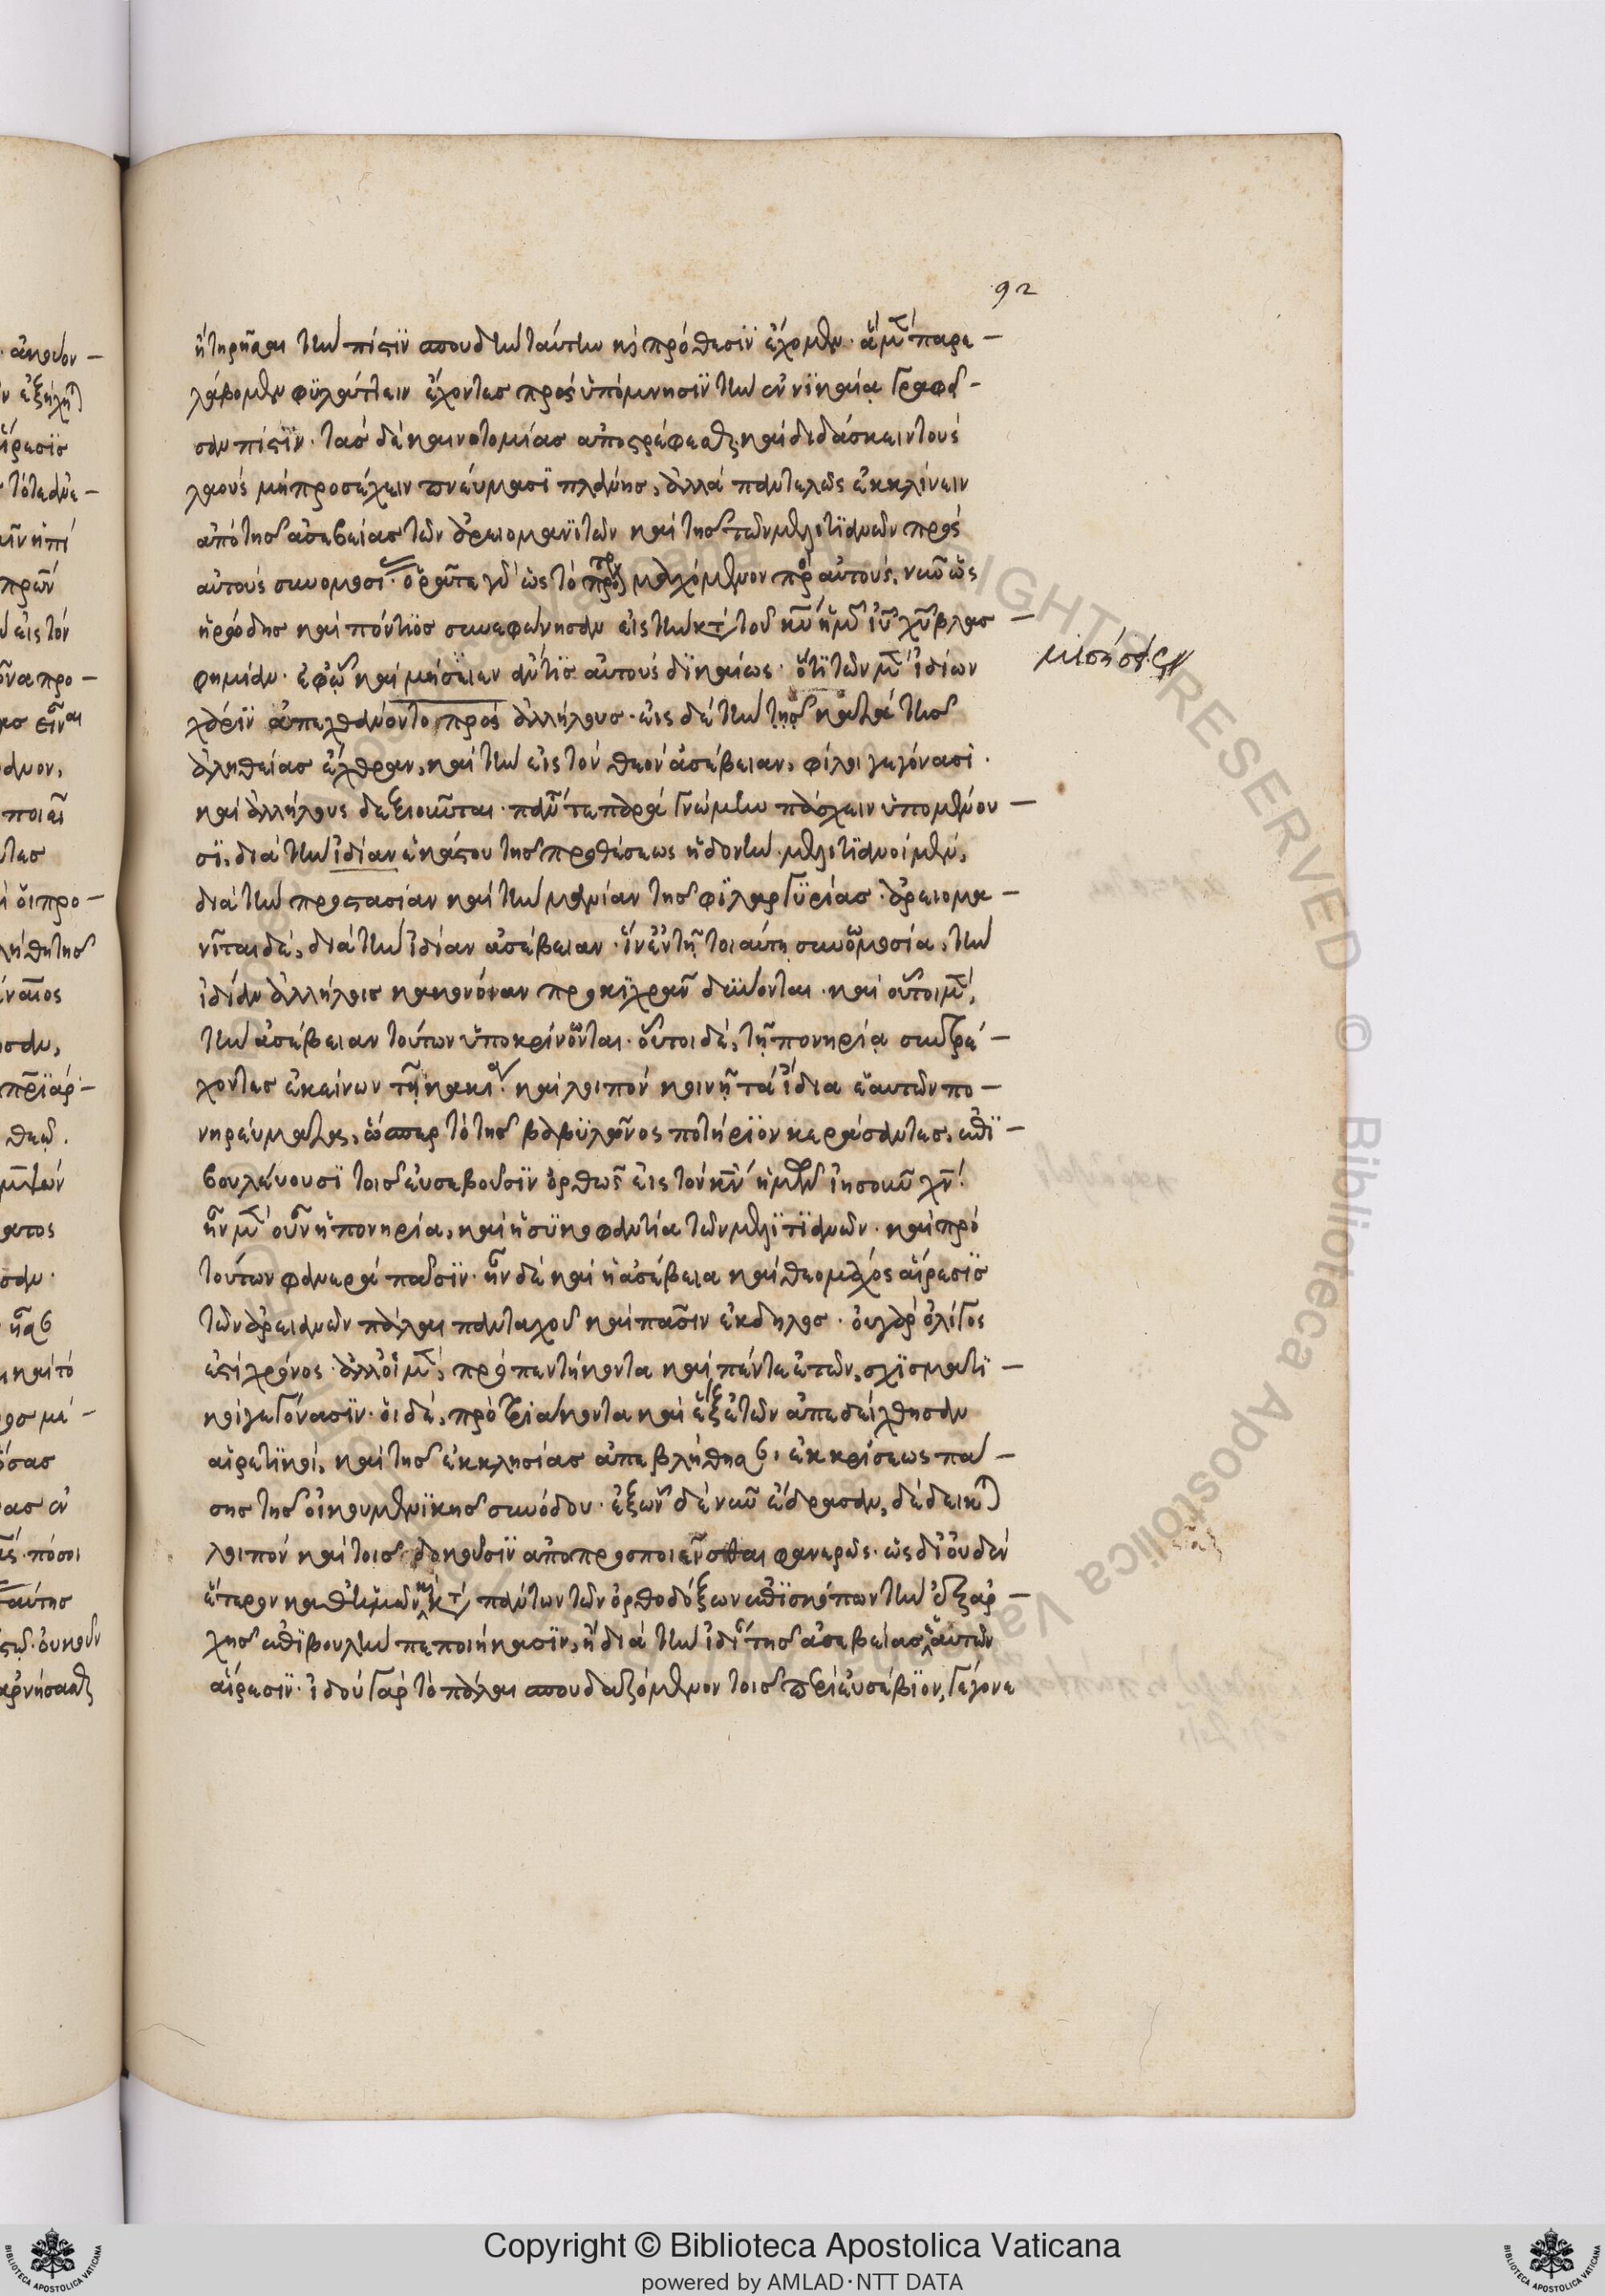 92
ἢ τηρῆσαι τὴν πίστϊν σπουδὴν ταύτην καὶ πρόθεσϊν ἔχομεν· ἃ μὲν παρε—
λάβομεν φϋλάττειν ἔχοντες πρὸς ὑπόμνησϊν τὴν ἐν νϊκαίᾳ γραφεῖ-
σαν πίστϊν· τὰς δὲ καινοτομίας ἀποστρέφεσθαι· καὶ διδάσκειν τοὺς
λαοὺς μὴ προσέχειν πνεύμασϊ πλάνης, ἀλλὰ παντελῶς ἐκκλίνειν
ἀπὸ τῆς ἀσεβείας τῶν ἀρειομανϊτῶν καὶ τῆς τῶν μελετϊανῶν πρὸς
αὐτοὺς συνομοσι· ὁρᾶτε γὰρ ὡς τὸ μαχόμενον πρὸ αὐτούς, νῦν ὡς
ἡρώδης καὶ πόντϊος συνεφώνησαν εἰς τὴν κατὰ τοῦ κυ ἡμῶν ιυ χυ βλασ—
φημίαν· ἐφ' ᾧ καὶ μισήσειεν ἄν τϊς αὐτοὺς δϊκαίως· ὅτϊ τῶν μὲν ἰδίων
μισήσει
χάρϊν ἀπεχθάνοντο πρὸς ἀλλήλους· εἰς δὲ τὴν τῆς κατὰ τῆς
ἀληθείας ἔχθραν, καὶ τὴν εἰς τὸν θεὸν ἀσέβειαν, φίλοι γεγόνασι·
καὶ ἀλλήλους δεξιοῦνται· πᾶν τε παρὰ γνώμην πάσχειν ὑπομένου—
σϊ, διὰ τὴν ἰδίαν ἑκάστου τῆς προθέσεως ἡδονήν· μελετϊανοὶ μὲν,
διὰ τὴν προστασίαν καὶ τὴν μανίαν τῆς φϊλαργϋρίας· ἀρειομα—
νῖται δὲ, διὰ τὴν ἰδίαν ἀσέβειαν· ἵν' ἐν τῇ τοιαύτῃ συνομοσίᾳ, τὴν
ἰδίαν ἀλλήλοις κακόνοιαν προκϊχρᾶν δϋνωνται· καὶ οὗτοι μὲν,
τὴν ἀσέβειαν τούτων ὑποκρίνονται· οὗτοι δὲ, τῇ πονηρίᾳ συντρέ—
χοντες ἐκείνων τῇ κακίᾳ· καὶ λοιπὸν κοινῇ τὰ ἴδια ἑαυτῶν πο—
νηρεύματα, ὥσπερ τὸ τῆς βαβϋλῶνος ποτήρϊον κεράσαντες, ἐπϊ—
βουλεύουσϊ τοῖς εὐσεβοῦσϊν ὀρθῶς εἰς τὸν κν ἡμῶν ἰησοῦν χν·
ἦν μὲν οὖν ἡ πονηρία, καὶ ἡ σϋκοφαντία τῶν μελϊτϊανῶν· καὶ πρὸ
τούτων φανερὰ πᾶσϊν· ἦν δὲ καὶ ἡ ἀσέβεια καὶ θεομάχος αἵρεσϊς
τῶν ἀρειανῶν πάλαι πανταχοῦ καὶ πᾶσιν ἔκδηλος· οὐ γὰρ ὀλίγος
ἐστὶ χρόνος· ἀλλ' οἱ μὲν, πρὸ πεντήκοντα καὶ πέντε ἐτῶν, σχϊσματϊ—
κοὶ γεγόνασϊν· οἱ δὲ, πρὸ τριάκοντα καὶ ἓξ ἐτῶν ἀπεδείχθησαν
αἱρετϊκοὶ, καὶ τῆς ἐκκλησίας ἀπεβλήθησαν, ἐκ κρίσεως πά—
σης τῆς οἰκουμενϊκῆς συνόδου· ἐξ ὧν δὲ νῦν ἔδρασαν, δέδεικται
λοιπὸν καὶ τοῖς δοκοῦσϊν ἀποπροσποιεῖσθαι φανερῶς· ὡς δι' οὐδὲν
ἕτερον καθ' ἡμῶν καὶ κατὰ πάντων τῶν ὀρθοδόξων ἐπϊσκόπων τὴν ἐξ ἀρ—
χῆς ἐπϊβουλὴν πεποιήκασϊν, ἢ διὰ τὴν ἰδίαν τῆς ἀσεβείας αὐτῶν
αἵρεσϊν· ἰδοὺ γὰρ τὸ πάλαι σπουδαζόμενον τοῖς περὶ εὐσέβϊον, γέγονε